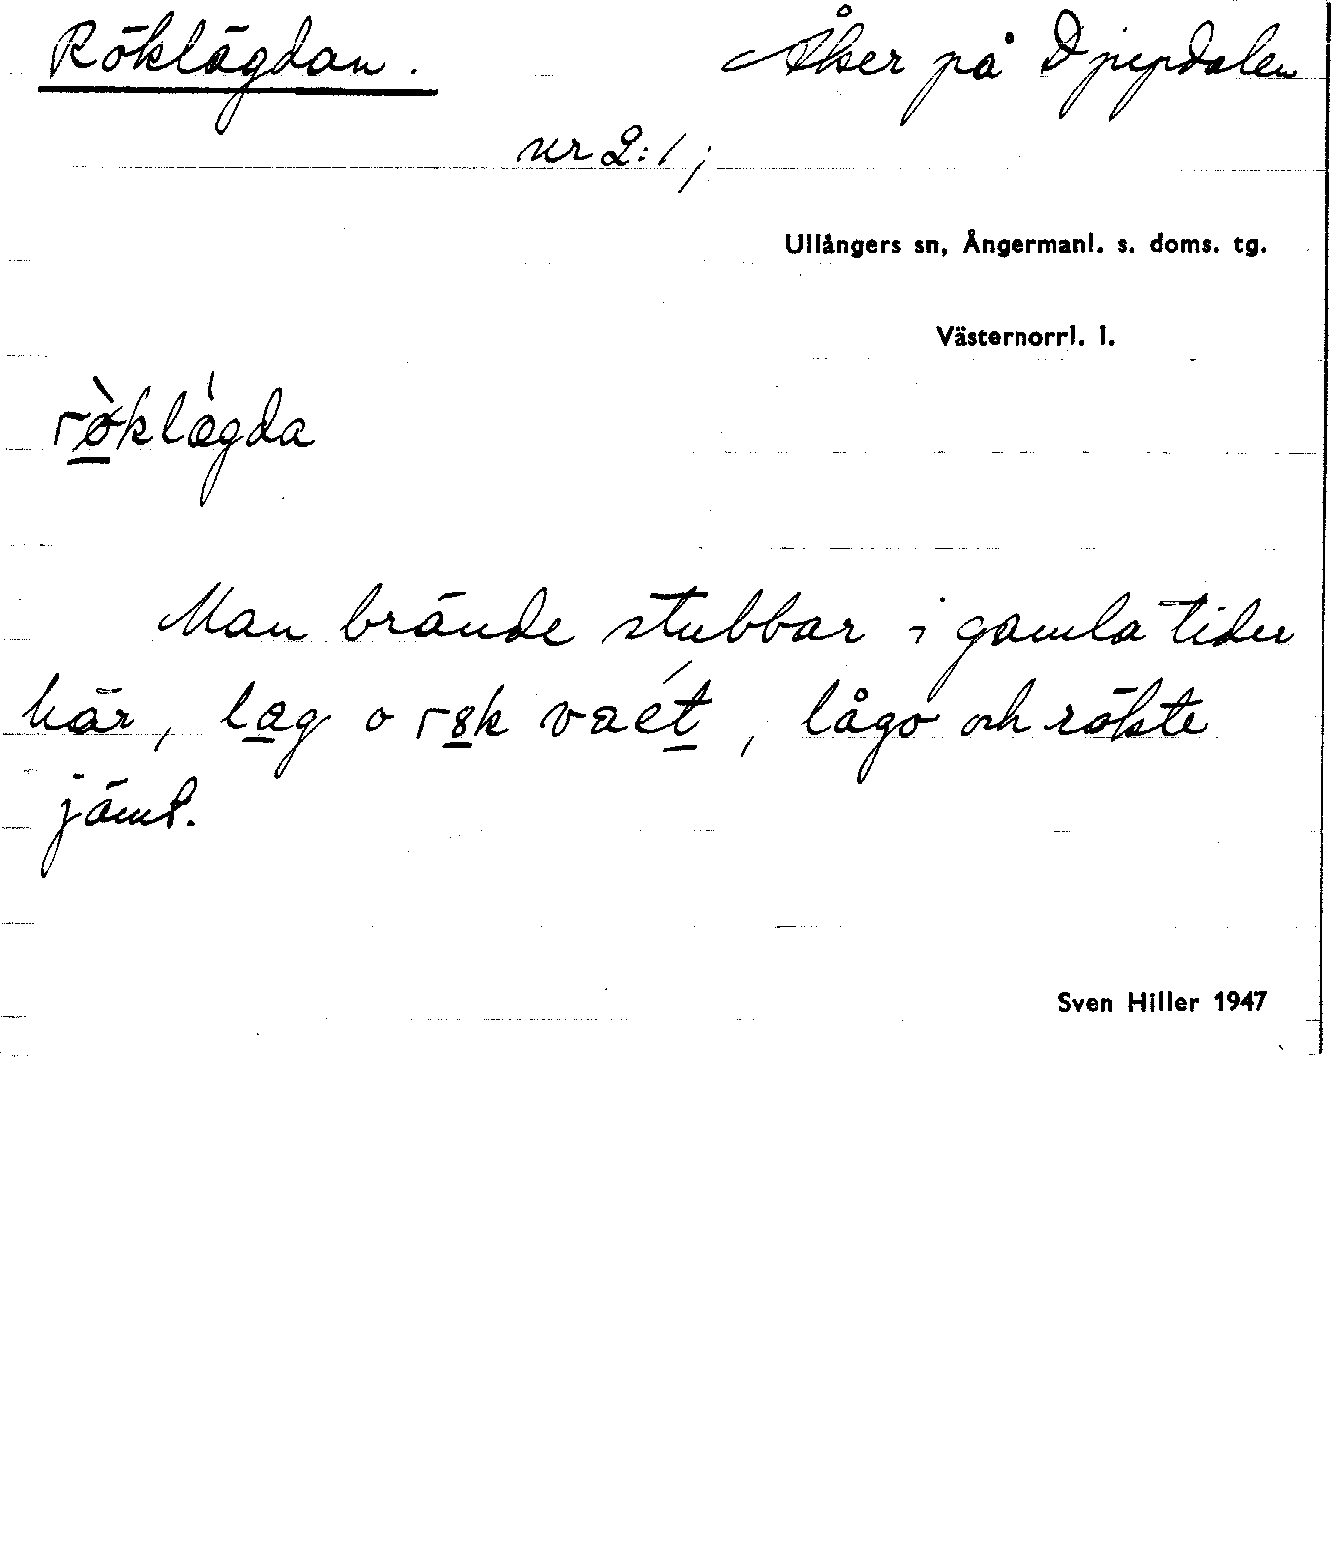 Röklägdan. Åker på Djupdalen
nr 2:1;
Ullångers sn, Ångermanl. s. doms. tg.
Västernorrl. l.
rø̀klǽgda
Man brände stubbar i gamla tider
här, læg o røk vaét, lågo och rökte
jämt.
Sven Hiller 1947